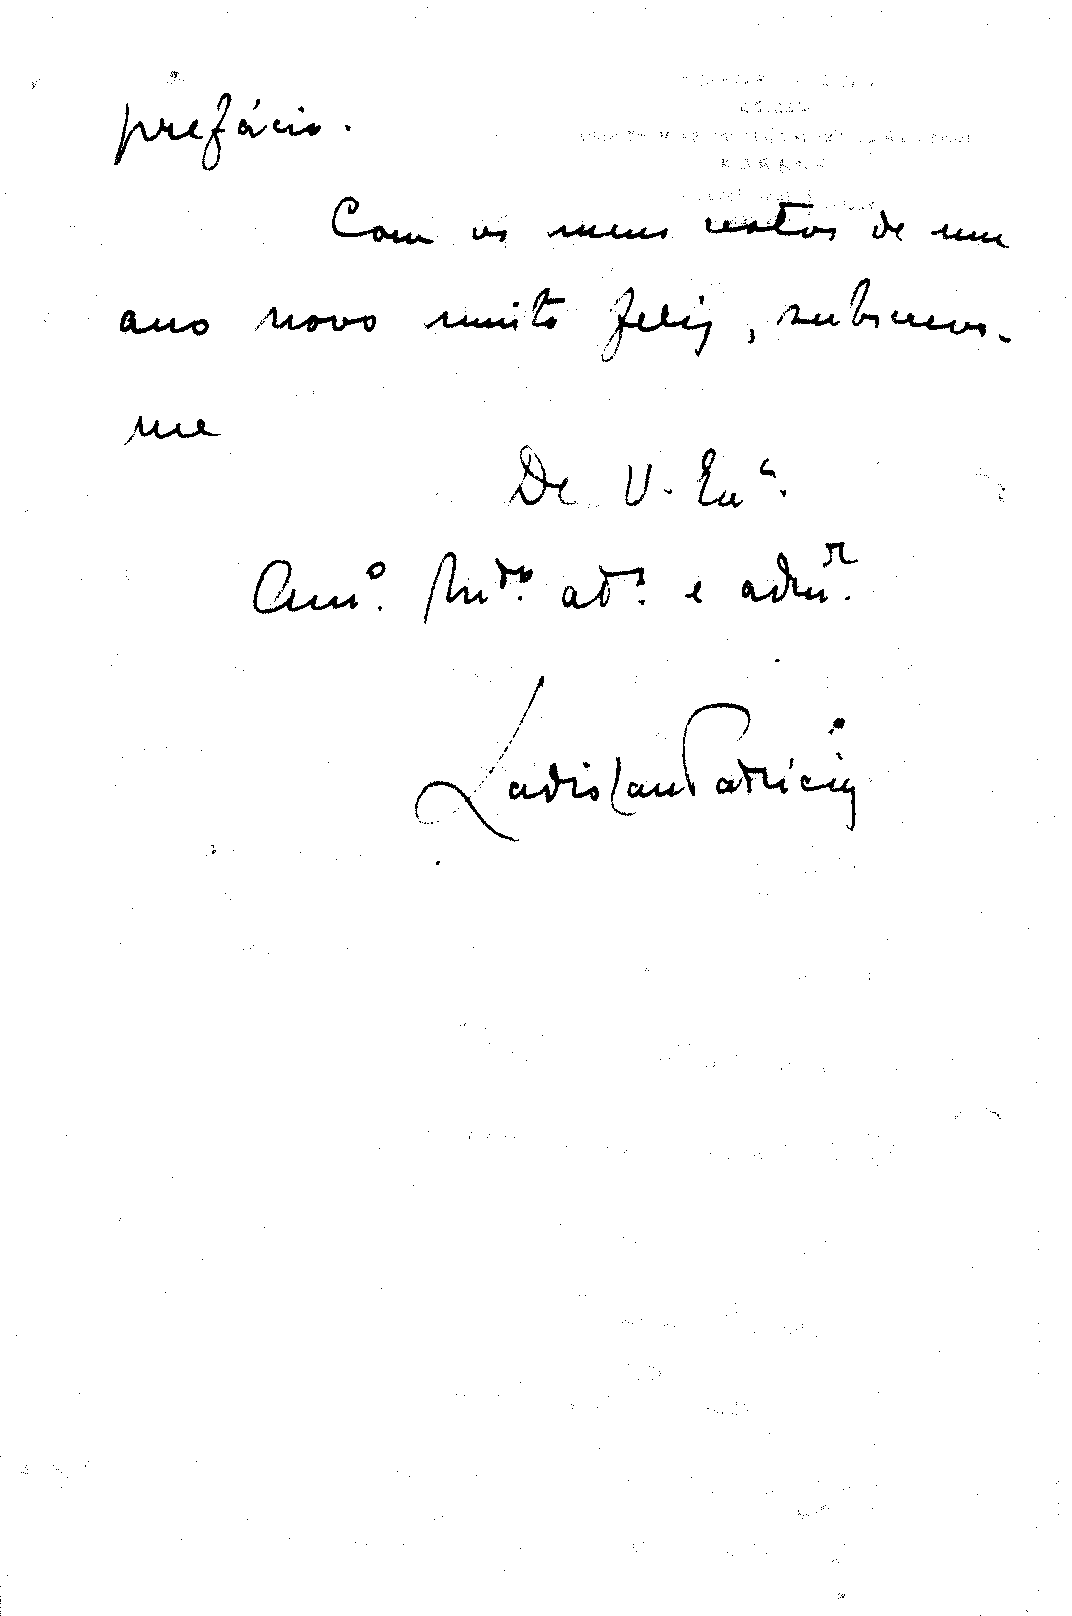 prefácio.
Com os meus votos de um
ano novo muito feliz, subscrevo-
me
De V. Exª.
Amº. Mtº. atº. e admºr.
Ladislau Patrício